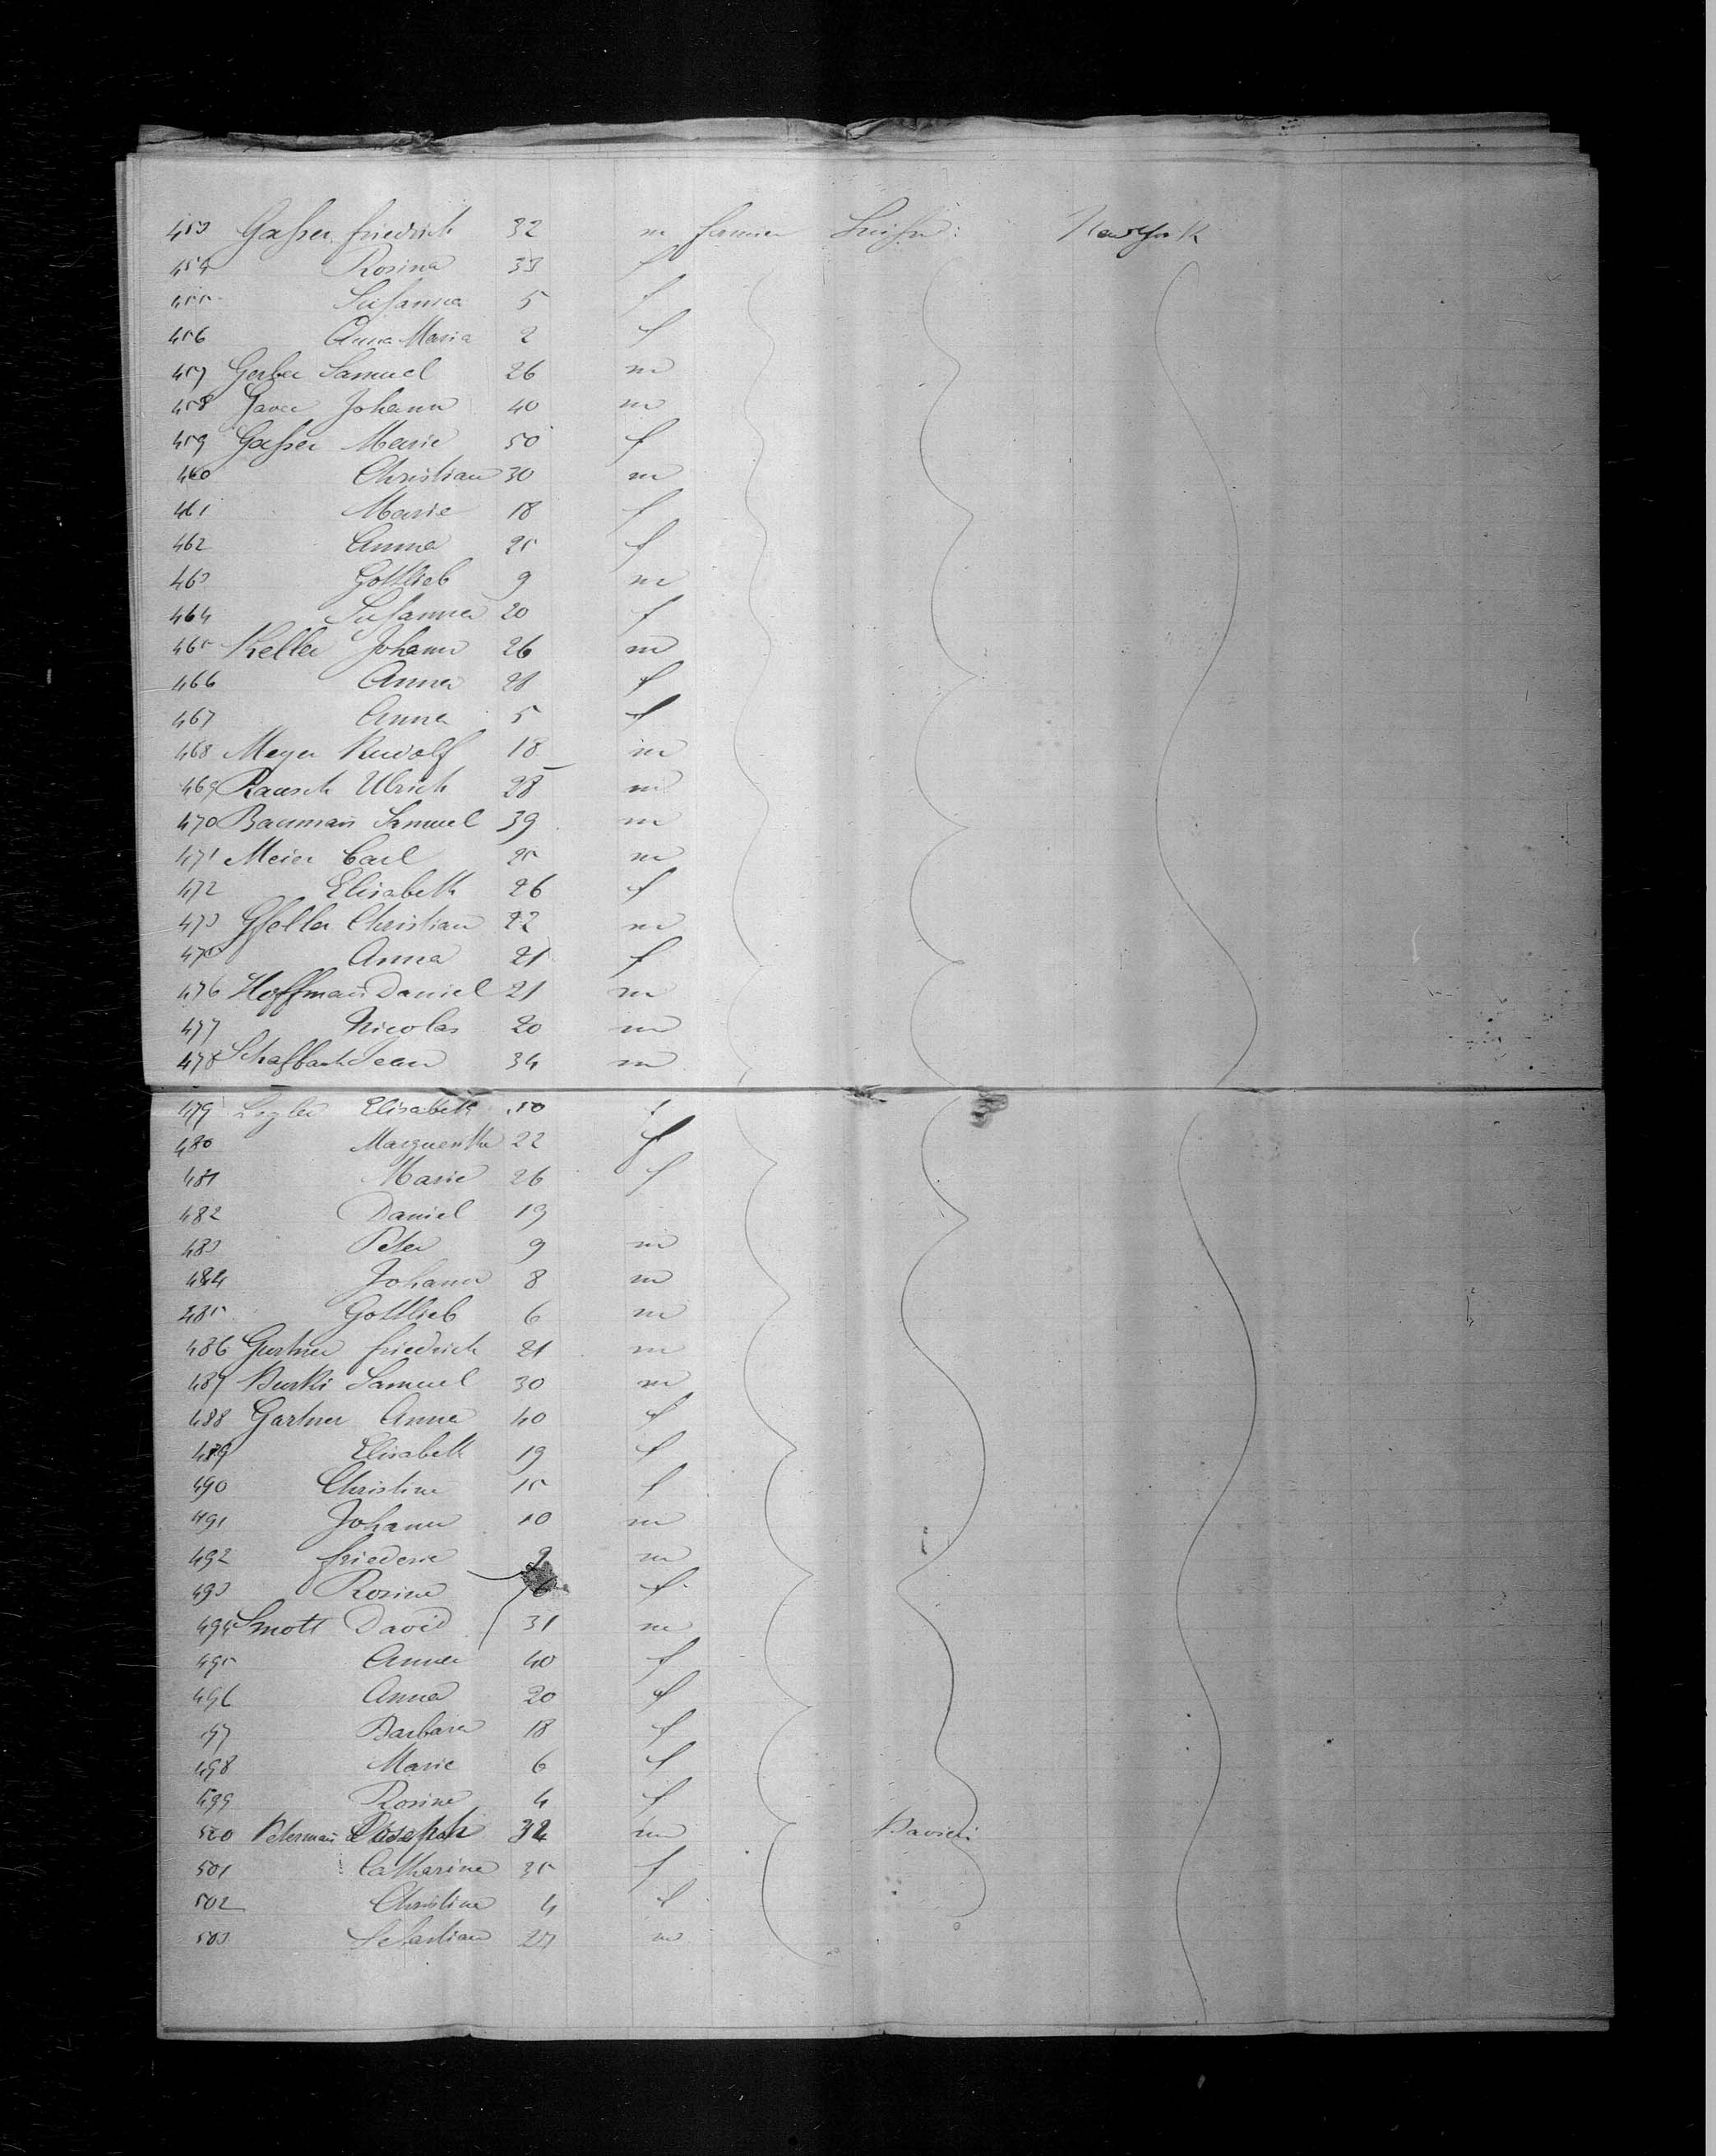 453 Gaßer friedrich 32 m farmer Suisse: New York
454 Rosina 33 f
455 Susanna 5 f
456 Anna Maria 2 f
457 Gerber Samuel 26 m
458 Johann 40 m
459 Gaßer Marie 50 f
460 Christian 30 m
461 Marie 18 f
462 Anna 25 f
463 Gottlieb 9 m
464 Susanna 20 f
465 Keller Johann 26 m
466 Anna 28 f
467 Anna 5 f
468 Meyer Rudolf 18 m
469 Rausch Ulrich 28 m
470 Baumañ Samuel 39 m
471 Meier Carl 25 m
472 Elisabeth 26 f
473 Gfeller Christian 22 m
475 Anna 21 f
476 Hoffmañ Daniel 21 m
477 Nicolas 20 m
478 Jean 34 m
479 Elisabeth 50 f
480 Marguerithe 22 f
481 Marie 26 f
482 Daniel 19
483 Peter 9 m
484 Johann 8 m
485 Gottlieb 6 m
486 Gurtner friedrich 21 m
487 Burki Samuel 30 m
488 Gartner Anna 40 f
489 Elisabeth 19 f
490 Christine 15 f
491 Johann 10 m
492 9 m
493 Rosine 6 f
494 Smott David 31 m
495 Anna 40 f
496 Anna 20 f
497 Barbara 18 f
498 Marie 6 f
499 Rosine 4 f
500 Petermañ Joseph 32 m
501 Catharine 35 f
502 Christine 4 f
503 Sebastian 27 m